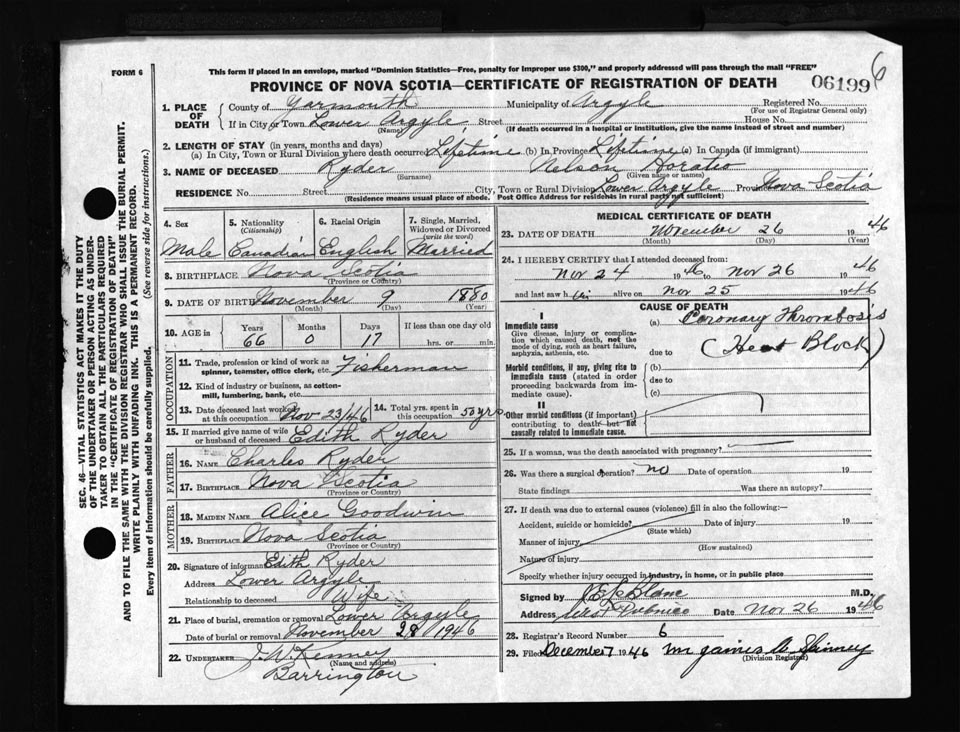 FORM 6
This form if placed in an envelope, marked "Dominion Statistics—Free, penalty for improper use $300," and properly addressed will pass through the mail "FREE"
PROVINCE OF NOVA SCOTIA—CERTIFICATE OF REGISTRATION OF DEATH
06199 6
1. PLACE OF DEATH
County of Yarmouth Municipality of Argyle Registered No.
(For use of Registrar General only)
If in City or Town Lower Argyle Street House No.
(Name) (If death occurred in a hospital or institution, give the name instead of street and number)
2. LENGTH OF STAY (in years, months and days)
(a) In City, Town or Rural Division where death occurred Lifetime (b) In Province Lifetime (c) In Canada (if immigrant)
3. NAME OF DECEASED Ryder Nelson Horatio
(Surname) (Given name or names)
RESIDENCE No. Street City, Town or Rural Division Lower Argyle Province Nova Scotia
(Residence means usual place of abode. Post Office Address for residents in rural parts not sufficient)
4. Sex
Male
5. Nationality
(Citizenship)
Canadian
6. Racial Origin
English
7. Single, Married, Widowed or Divorced
(write the word)
Married
8. BIRTHPLACE Nova Scotia
(Province or Country)
9. DATE OF BIRTH November 9 1880
(Month) (Day) (Year)
10. AGE in Years Months Days If less than one day old
66 0 17 hrs. or min.
OCCUPATION
11. Trade, profession or kind of work as spinner, teamster, office clerk, etc. Fisherman
12. Kind of industry or business, as cotton-mill, lumbering, bank, etc.
13. Date deceased last worked at this occupation Nov 23/46
14. Total yrs. spent in this occupation 50 yrs
15. If married give name of wife or husband of deceased Edith Ryder
FATHER
16. NAME Charles Ryder
17. BIRTHPLACE Nova Scotia
(Province or Country)
MOTHER
18. MAIDEN NAME Alice Goodwin
19. BIRTHPLACE Nova Scotia
(Province or Country)
20. Signature of informant Edith Ryder
Address Lower Argyle
Relationship to deceased Wife
21. Place of burial, cremation or removal Lower Argyle
Date of burial or removal November 28 1946
22. UNDERTAKER J. W. Kenney
(Name and address)
Barrington
MEDICAL CERTIFICATE OF DEATH
23. DATE OF DEATH November 26 1946
(Month) (Day) (Year)
24. I HEREBY CERTIFY that I attended deceased from:
Nov 24 1946 to Nov 26 1946
and last saw him alive on Nov 25 1946
CAUSE OF DEATH
I
Immediate cause
Give disease, injury or complication which caused death, not the mode of dying, such as heart failure, asphyxia, asthenia, etc.
(a) Coronary Thrombosis
due to (Heart Block)
Morbid conditions, if any, giving rise to immediate cause (stated in order proceeding backwards from immediate cause).
(b)
due to
(c)
II
Other morbid conditions (if important) contributing to death but not causally related to immediate cause.
25. If a woman, was the death associated with pregnancy?
26. Was there a surgical operation? no Date of operation 19
State findings Was there an autopsy?
27. If death was due to external causes (violence) fill in also the following:—
Accident, suicide or homicide? Date of injury 19
(State which)
Manner of injury
(How sustained)
Nature of injury
Specify whether injury occurred in industry, in home, or in public place
Signed by LeBlanc M.D.
Address West Pubnico Date Nov 26 1946
28. Registrar's Record Number 6
29. Filed December 7 1946 Mr James A Spinney
(Division Registrar)
SEC. 46—VITAL STATISTICS ACT MAKES IT THE DUTY
OF THE UNDERTAKER OR PERSON ACTING AS UNDER-
TAKER TO OBTAIN ALL THE PARTICULARS REQUIRED
IN THE "CERTIFICATE OF REGISTRATION OF DEATH"
AND TO FILE THE SAME WITH THE DIVISION REGISTRAR WHO SHALL ISSUE THE BURIAL PERMIT.
WRITE PLAINLY WITH UNFADING INK. THIS IS A PERMANENT RECORD.
Every item of information should be carefully supplied. (See reverse side for instructions.)